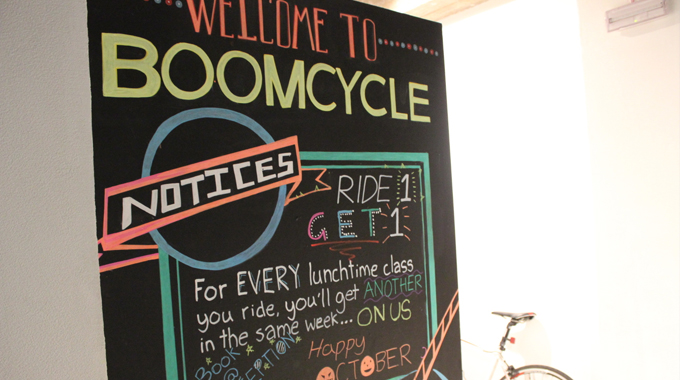 WELCOME TO
BOOMCYCLE
NOTICES
RIDE 1
GET 1
For EVERY lunchtime class
you ride, you'll get ANOTHER
in the same week... ON US
BOOK
@
RECEPTION
Happy
OCTOBER